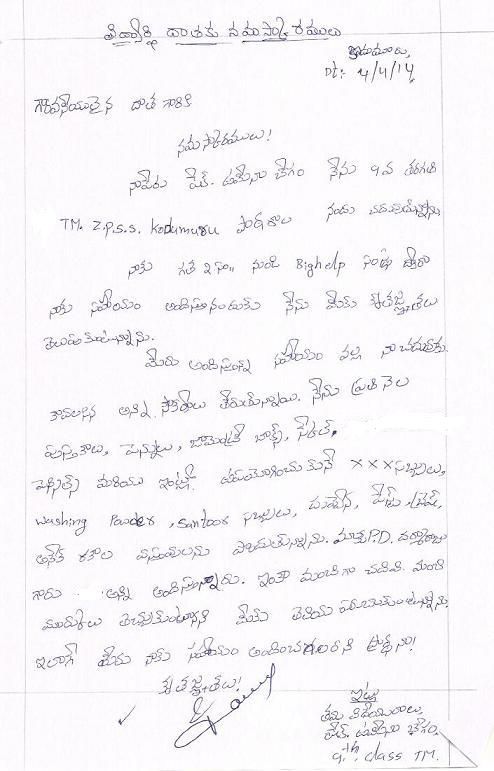 విద్యార్థి దాతకు నమస్కారములు
కోడుమూరు,
Dt: 4/4/14
గౌరవనీయులైన దాత గారికి
నమస్కారములు!
నాపేరు షేక్. బేగం నేను 9వ తరగతి
TM. Z.P.S.S. Kodumuru పాఠశాల నందు చదువుతున్నాను
నాకు గత 2 సం॥ నుండి Bighelp సంస్థ ద్వారా
నాకు సహాయం అందిస్తునందుకు నేను మీకు కృతజ్ఞతలు
తెలుపుకుంటున్నాను.
మీరు అందిస్తున్న సహాయం వల్ల నా చదువుకు
కావలసిన అన్ని సౌకర్యాలు తీరుతున్నాయి. నేను ప్రతి నెల
పుస్తకాలు, పెన్నులు, జామెంట్రీ బాక్స్, స్కేల్,
పెన్సిల్స్ మరియు ఇంట్లో ఉపయోగించుకునే XXX సబ్బులు,
Washing Powder, Santoor సబ్బులు, పేస్టు, బ్రష్,
అనేక రకాల వస్తువులను పొందుతున్నాను. మాకు P.D.
గారు అన్ని అందిస్తున్నారు. ఇంకా మంచిగా చదివి మంచి
మార్కులు తెచ్చుకుంటానని మీకు తెలియ
ఇలాగే మీరు నాకు సహాయం అందించగలరని
కృతజ్ఞతలు!
ఇట్లు
తమ విధేయురాలు,
షేక్. బేగం.
9th class TM.